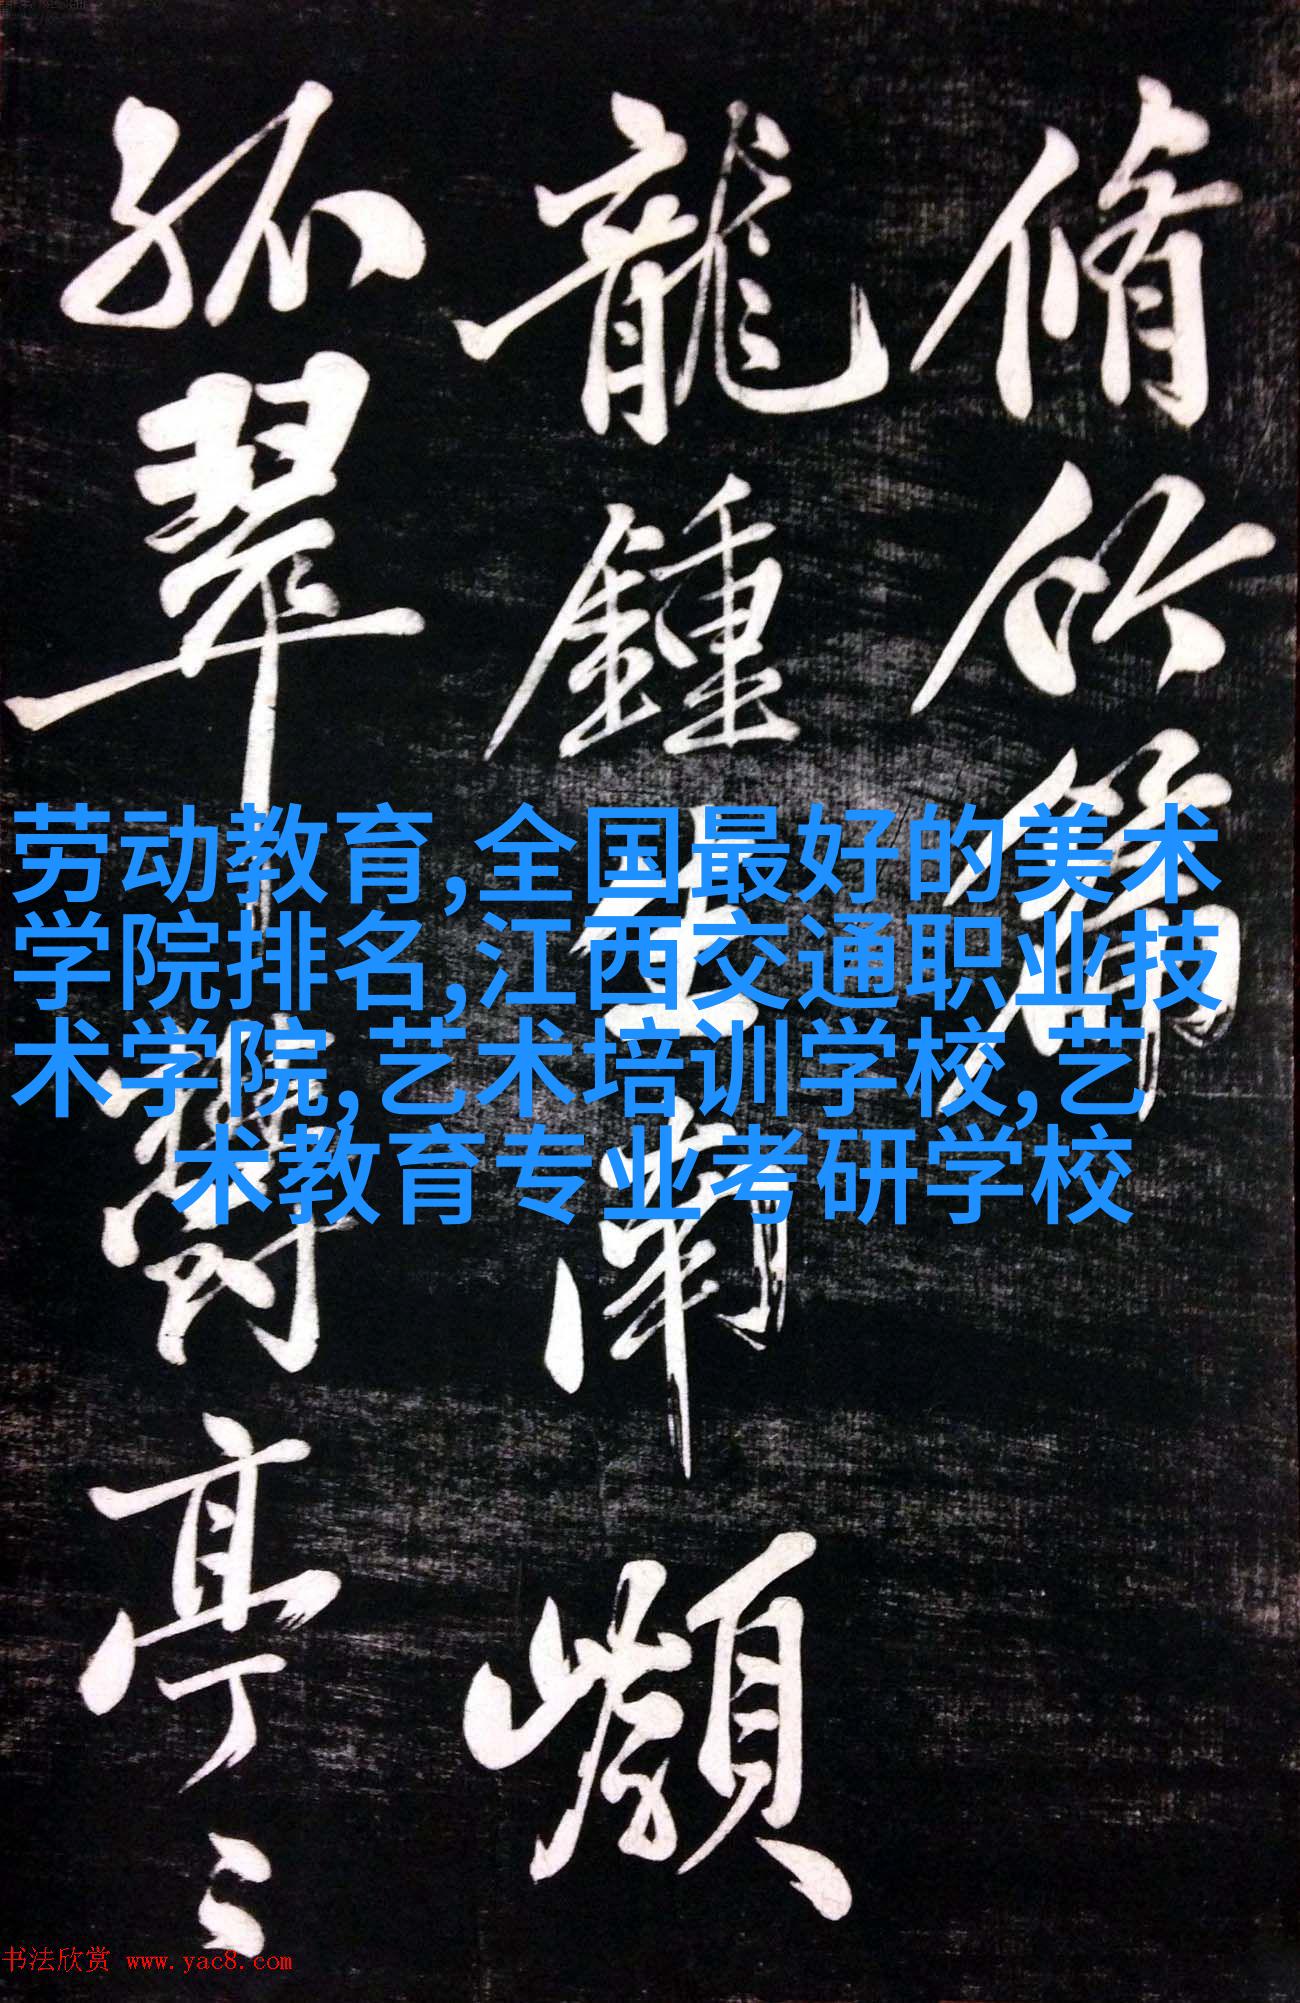 脩竹篇
龍鍾生南巔
孤翠鬱亭〻
劳动教育,全国最好的美术
学院排名,江西交通职业技
术学院,艺术培训学校,艺
术教育专业考研学校
书法欣赏 www.yac8.com